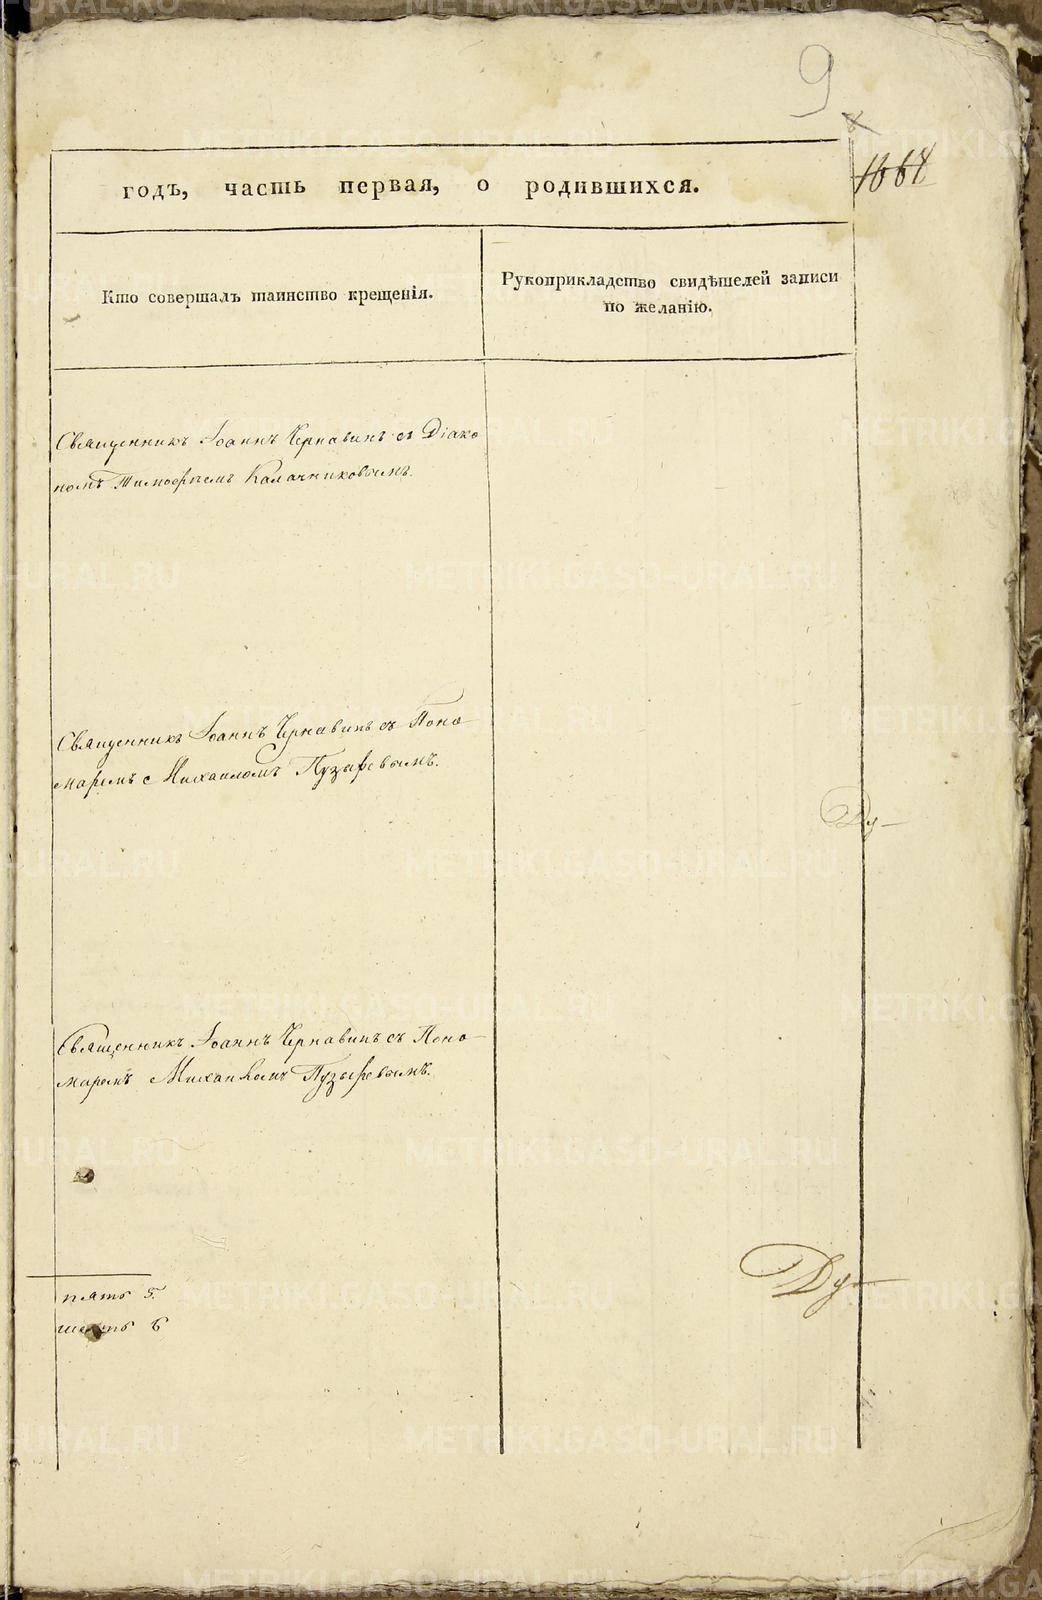 9
1668
годъ, часть первая, о родившихся.
Кто совершалъ таинство крещенія.
Рукоприкладство свидѣтелей записи
по желанію.
Священникъ Іоаннъ Чернавинъ съ Діако
номъ Тимоѳеемъ Калачниковымъ.
Священникъ Іоаннъ Чернавинъ съ Поно
маремъ с Михаиломъ Пузыревымъ.
Священникъ Іоаннъ Чернавинъ съ Поно
маремъ Михаиломъ Пузыревымъ.
Ду
Ду
пять 5.
шесть 6
METRIKI.GASO-URAL.RU